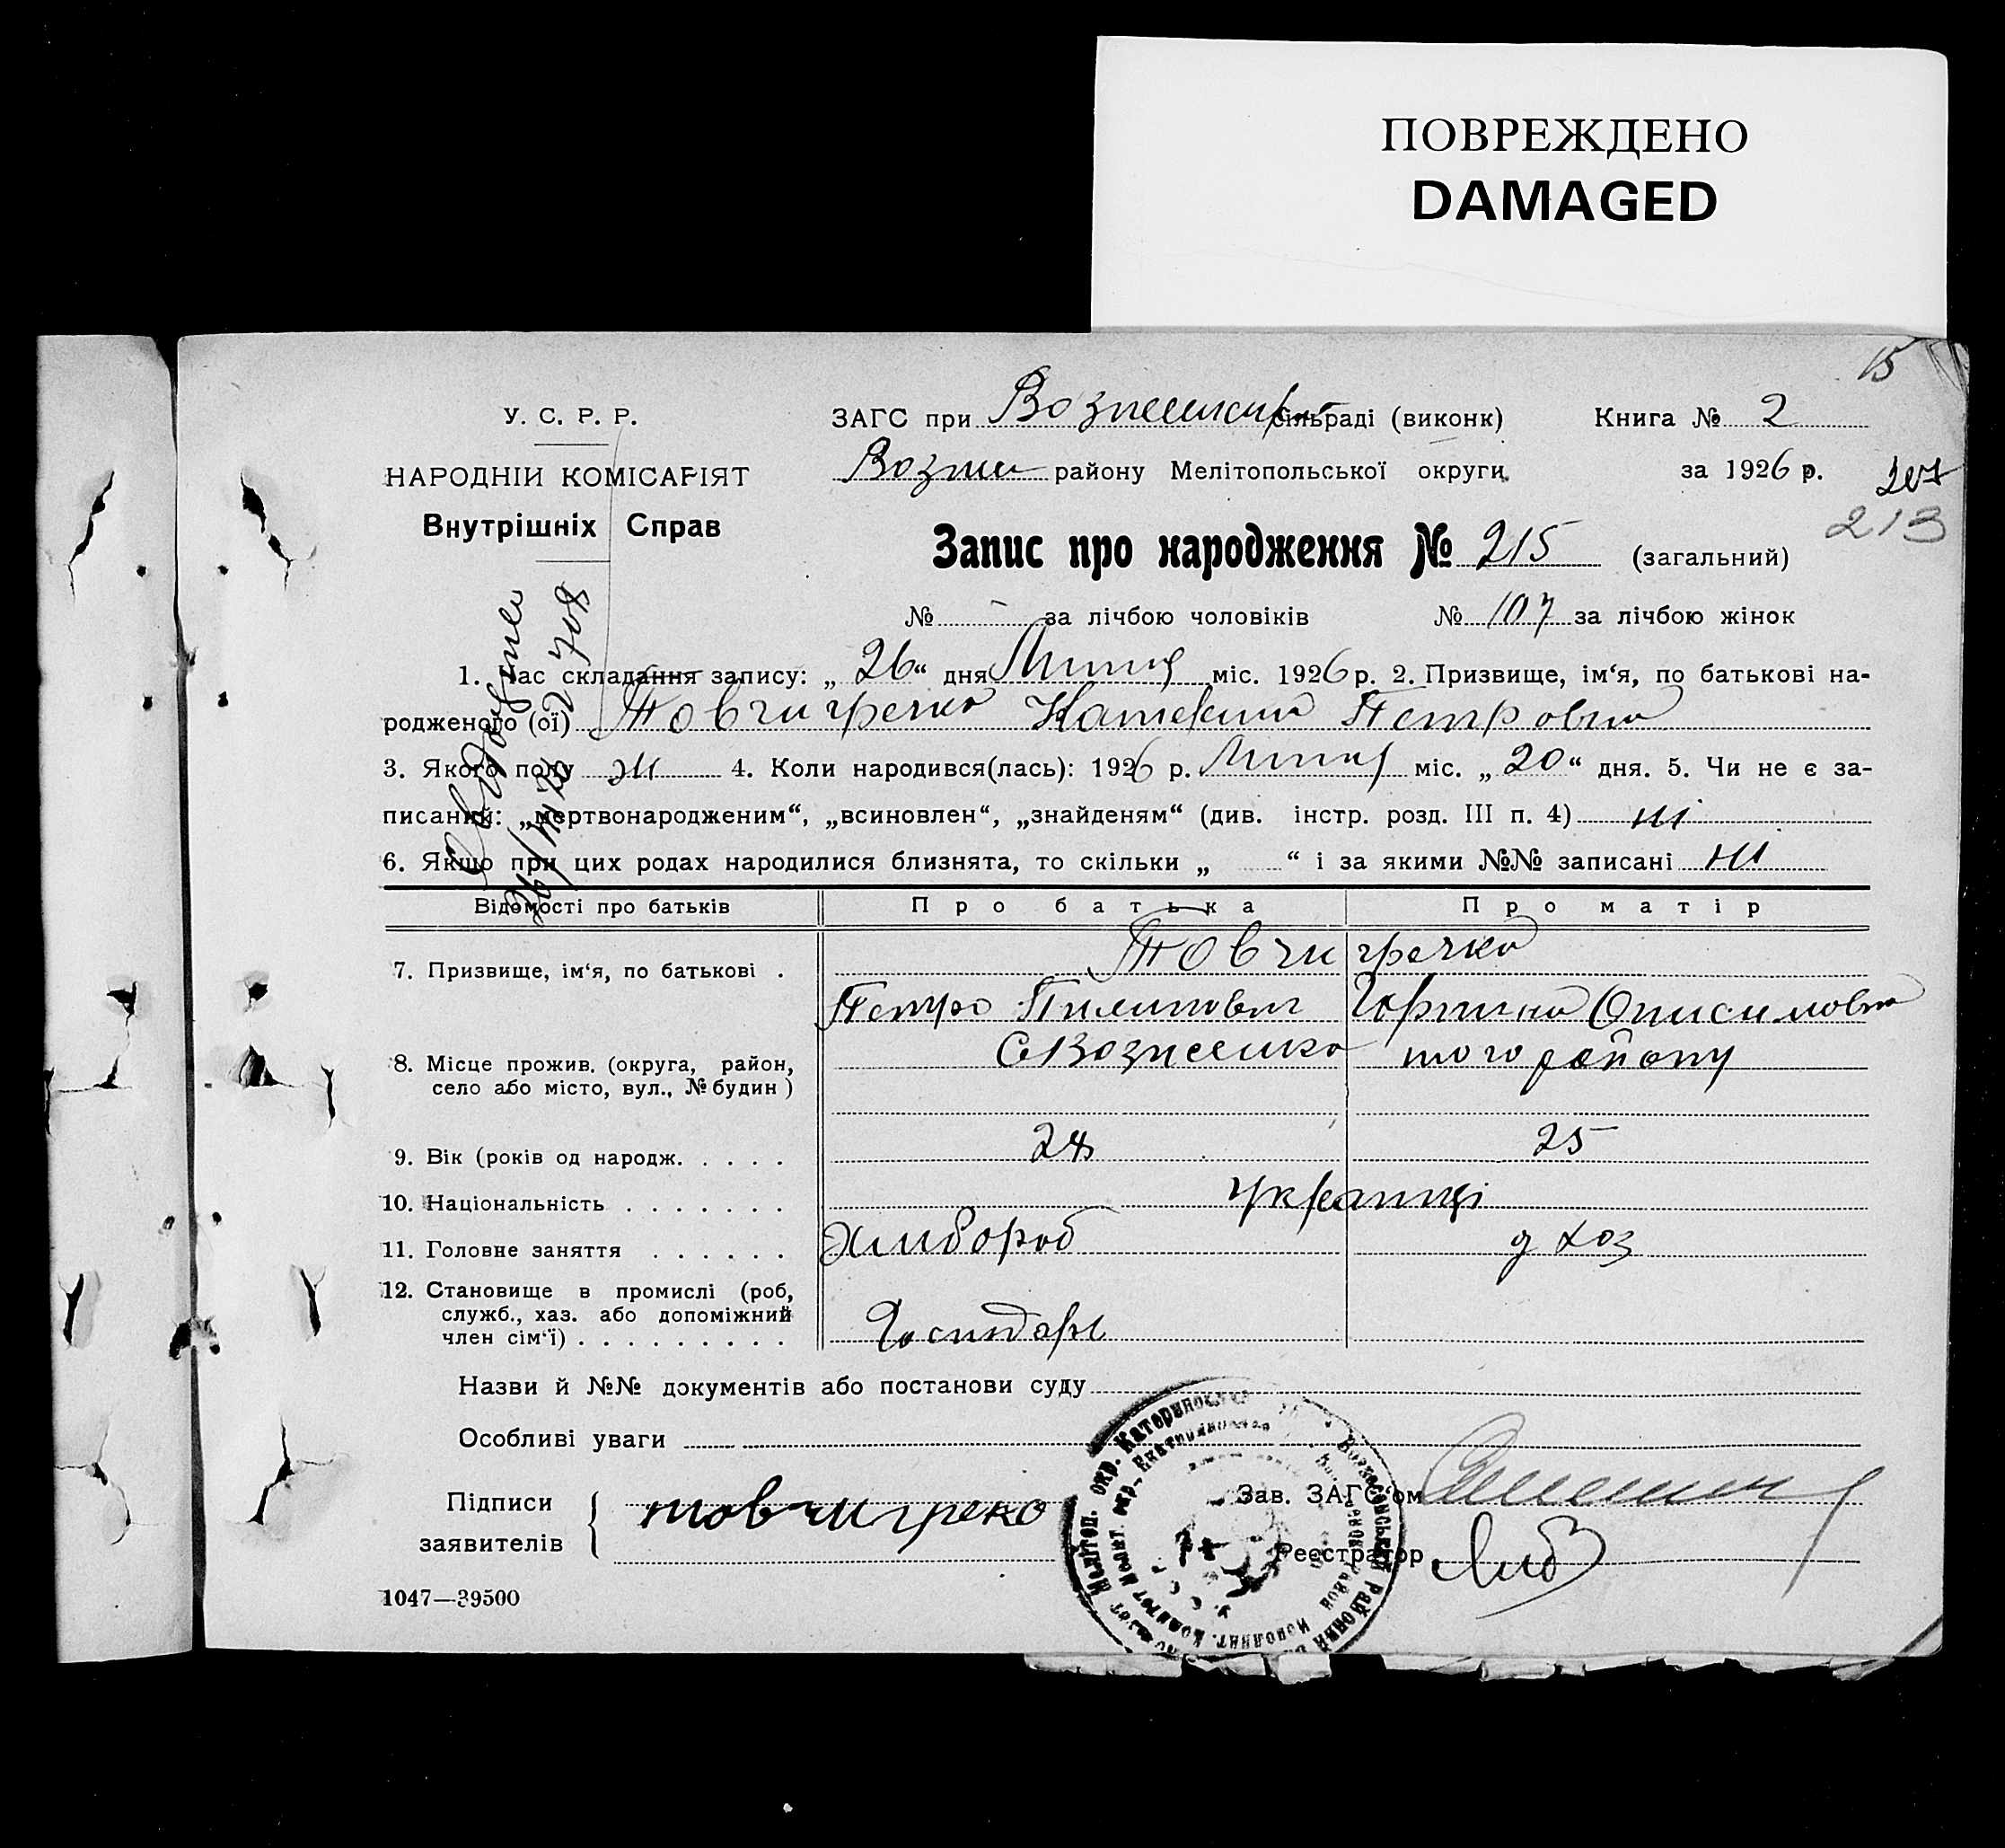 ПОВРЕЖДЕНО
DAMAGED
15
У. С. Р. Р.
ЗАГС при Вознесенськ сільраді (виконк) Книга № 2
НАРОДНІЙ КОМІСАРІЯТ
Возне району Мелітопольської округи за 1926 р.
207
213
Внутрішніх Справ
Запис про народження № 215 (загальний)
№ - за лічбою чоловіків № 107 за лічбою жінок
1. Час складання запису: „ 26 “ дня Липця міс. 1926 р. 2. Призвище, ім‘я, по батькові на-
родженого (ої) Товчигречко Петровна
3. Якого полу Ж 4. Коли народився(лась): 1926 р. Липця міс. „ 20 “ дня. 5. Чи не є за-
писаний: „мертвонародженим“, „всиновлен“, „знайденям“ (див. інстр. розд. III п. 4) ні
6. Якщо при цих родах народилися близнята, то скільки „ “ і за якими №№ записані ні
Відомості про батьків Про батька Про матір
7. Призвище, ім‘я, по батькові . Товчигречко
Петро Пилипович Горпина Онисимовна
8. Місце прожив. (округа, район,
село або місто, вул., № будин )
С Вознесенка того району
9. Вік (років од народж. . . . . 24 25
10. Національність . . . . . . . українці
11. Головне заняття . . . . . . Хлибороб д хоз
12. Становище в промислі (роб,
служб., хаз. або допоміжний
член сім‘ї) . . . . . . . . . Господарь
Назви й №№ документів або постанови суду
Особливі уваги
Підписи
заявителів
товчигреко
Зав. ЗАГС‘ом
Реєстратор
1047—39500